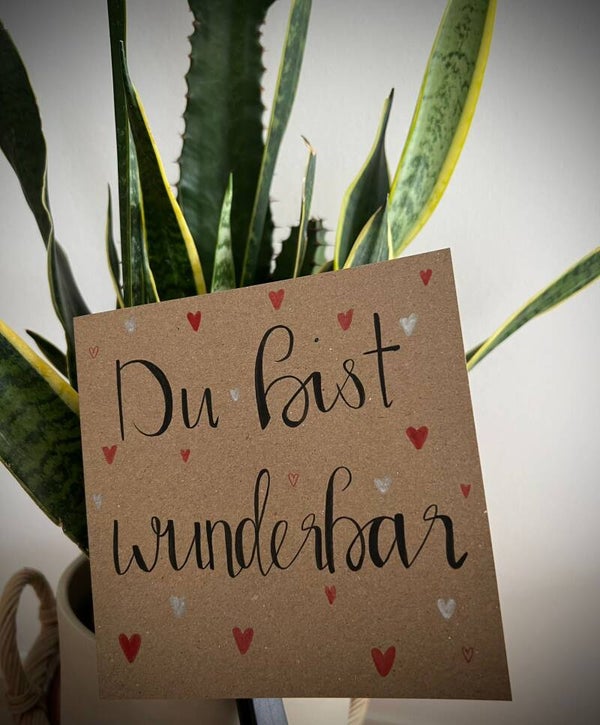 Du bist
wunderbar